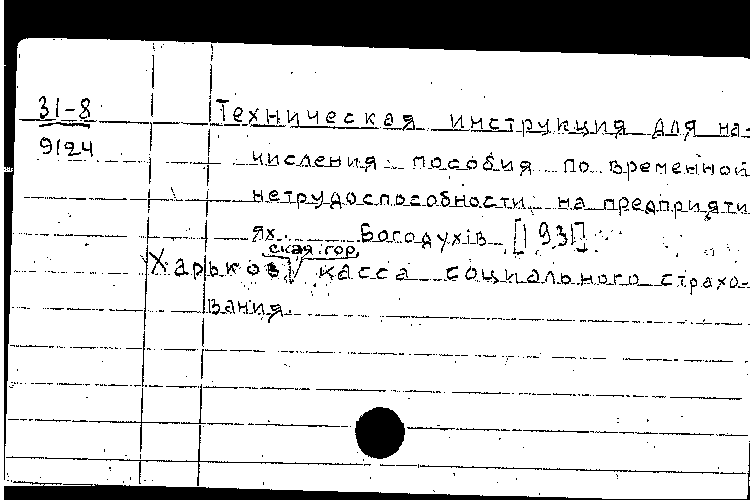 31-8
9124
Техническая инструкция для на-
числения пособия по временной
нетрудоспособности на предприяти
ях. Богодухів [1931]
ская гор.
Харьков√ касса социального страхо-
вания.